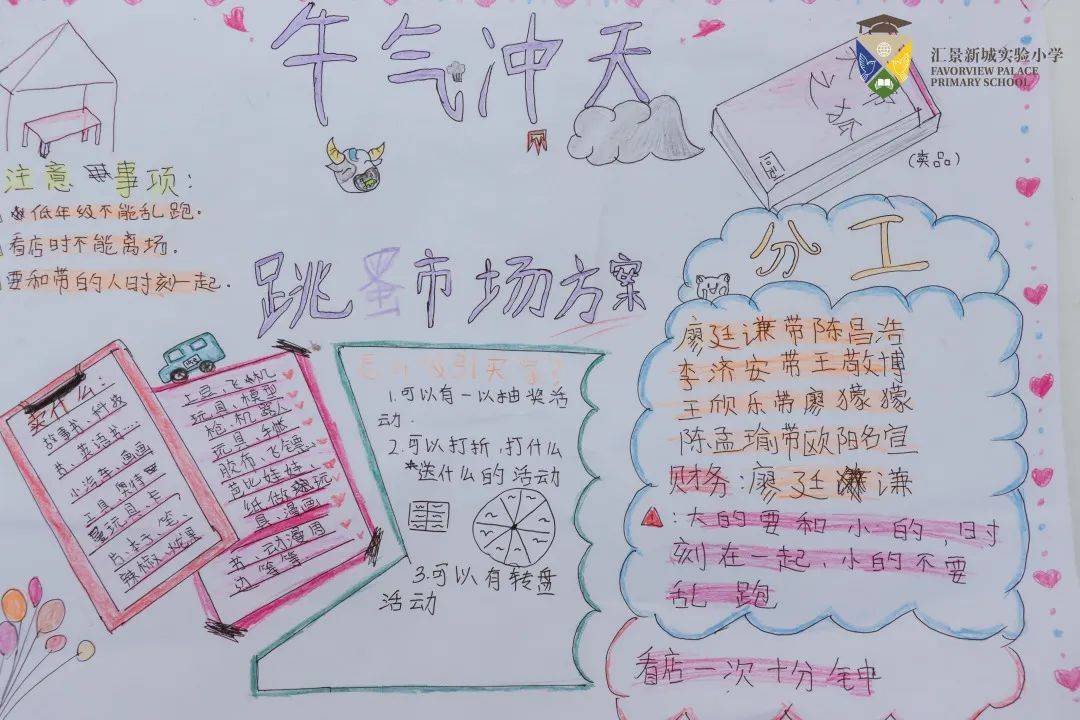 牛气冲天
汇景新城实验小学
FAVORVIEW PALACE
PRIMARY SCHOOL
(卖品)
注意事项:
低年级不能乱跑.
看店时不能离场.
要和带的人时刻一起.
跳蚤市场方案
分工
廖廷谦带陈昌浩
李济安带王敬博
王欣乐带廖檬檬
陈孟瑜带欧阳名宣
财务:廖廷谦
:大的要和小的,时
刻在一起,小的不要
乱跑
看店一次十分钟
卖什么:
故事书、科战
书、英语书....
小汽车、画画
工具、奥特
玩具、卡
片、本子、笔、
土豆、飞机
玩具、模型
枪、机器人
玩具、手做
胶布、飞镖、
芭比娃娃、
纸做玩
具、漫画
书、动漫周
边等等
1.可以有一以抽奖活
动.
2.可以打折,打什么
送什么的活动
3.可以有转盘
活动